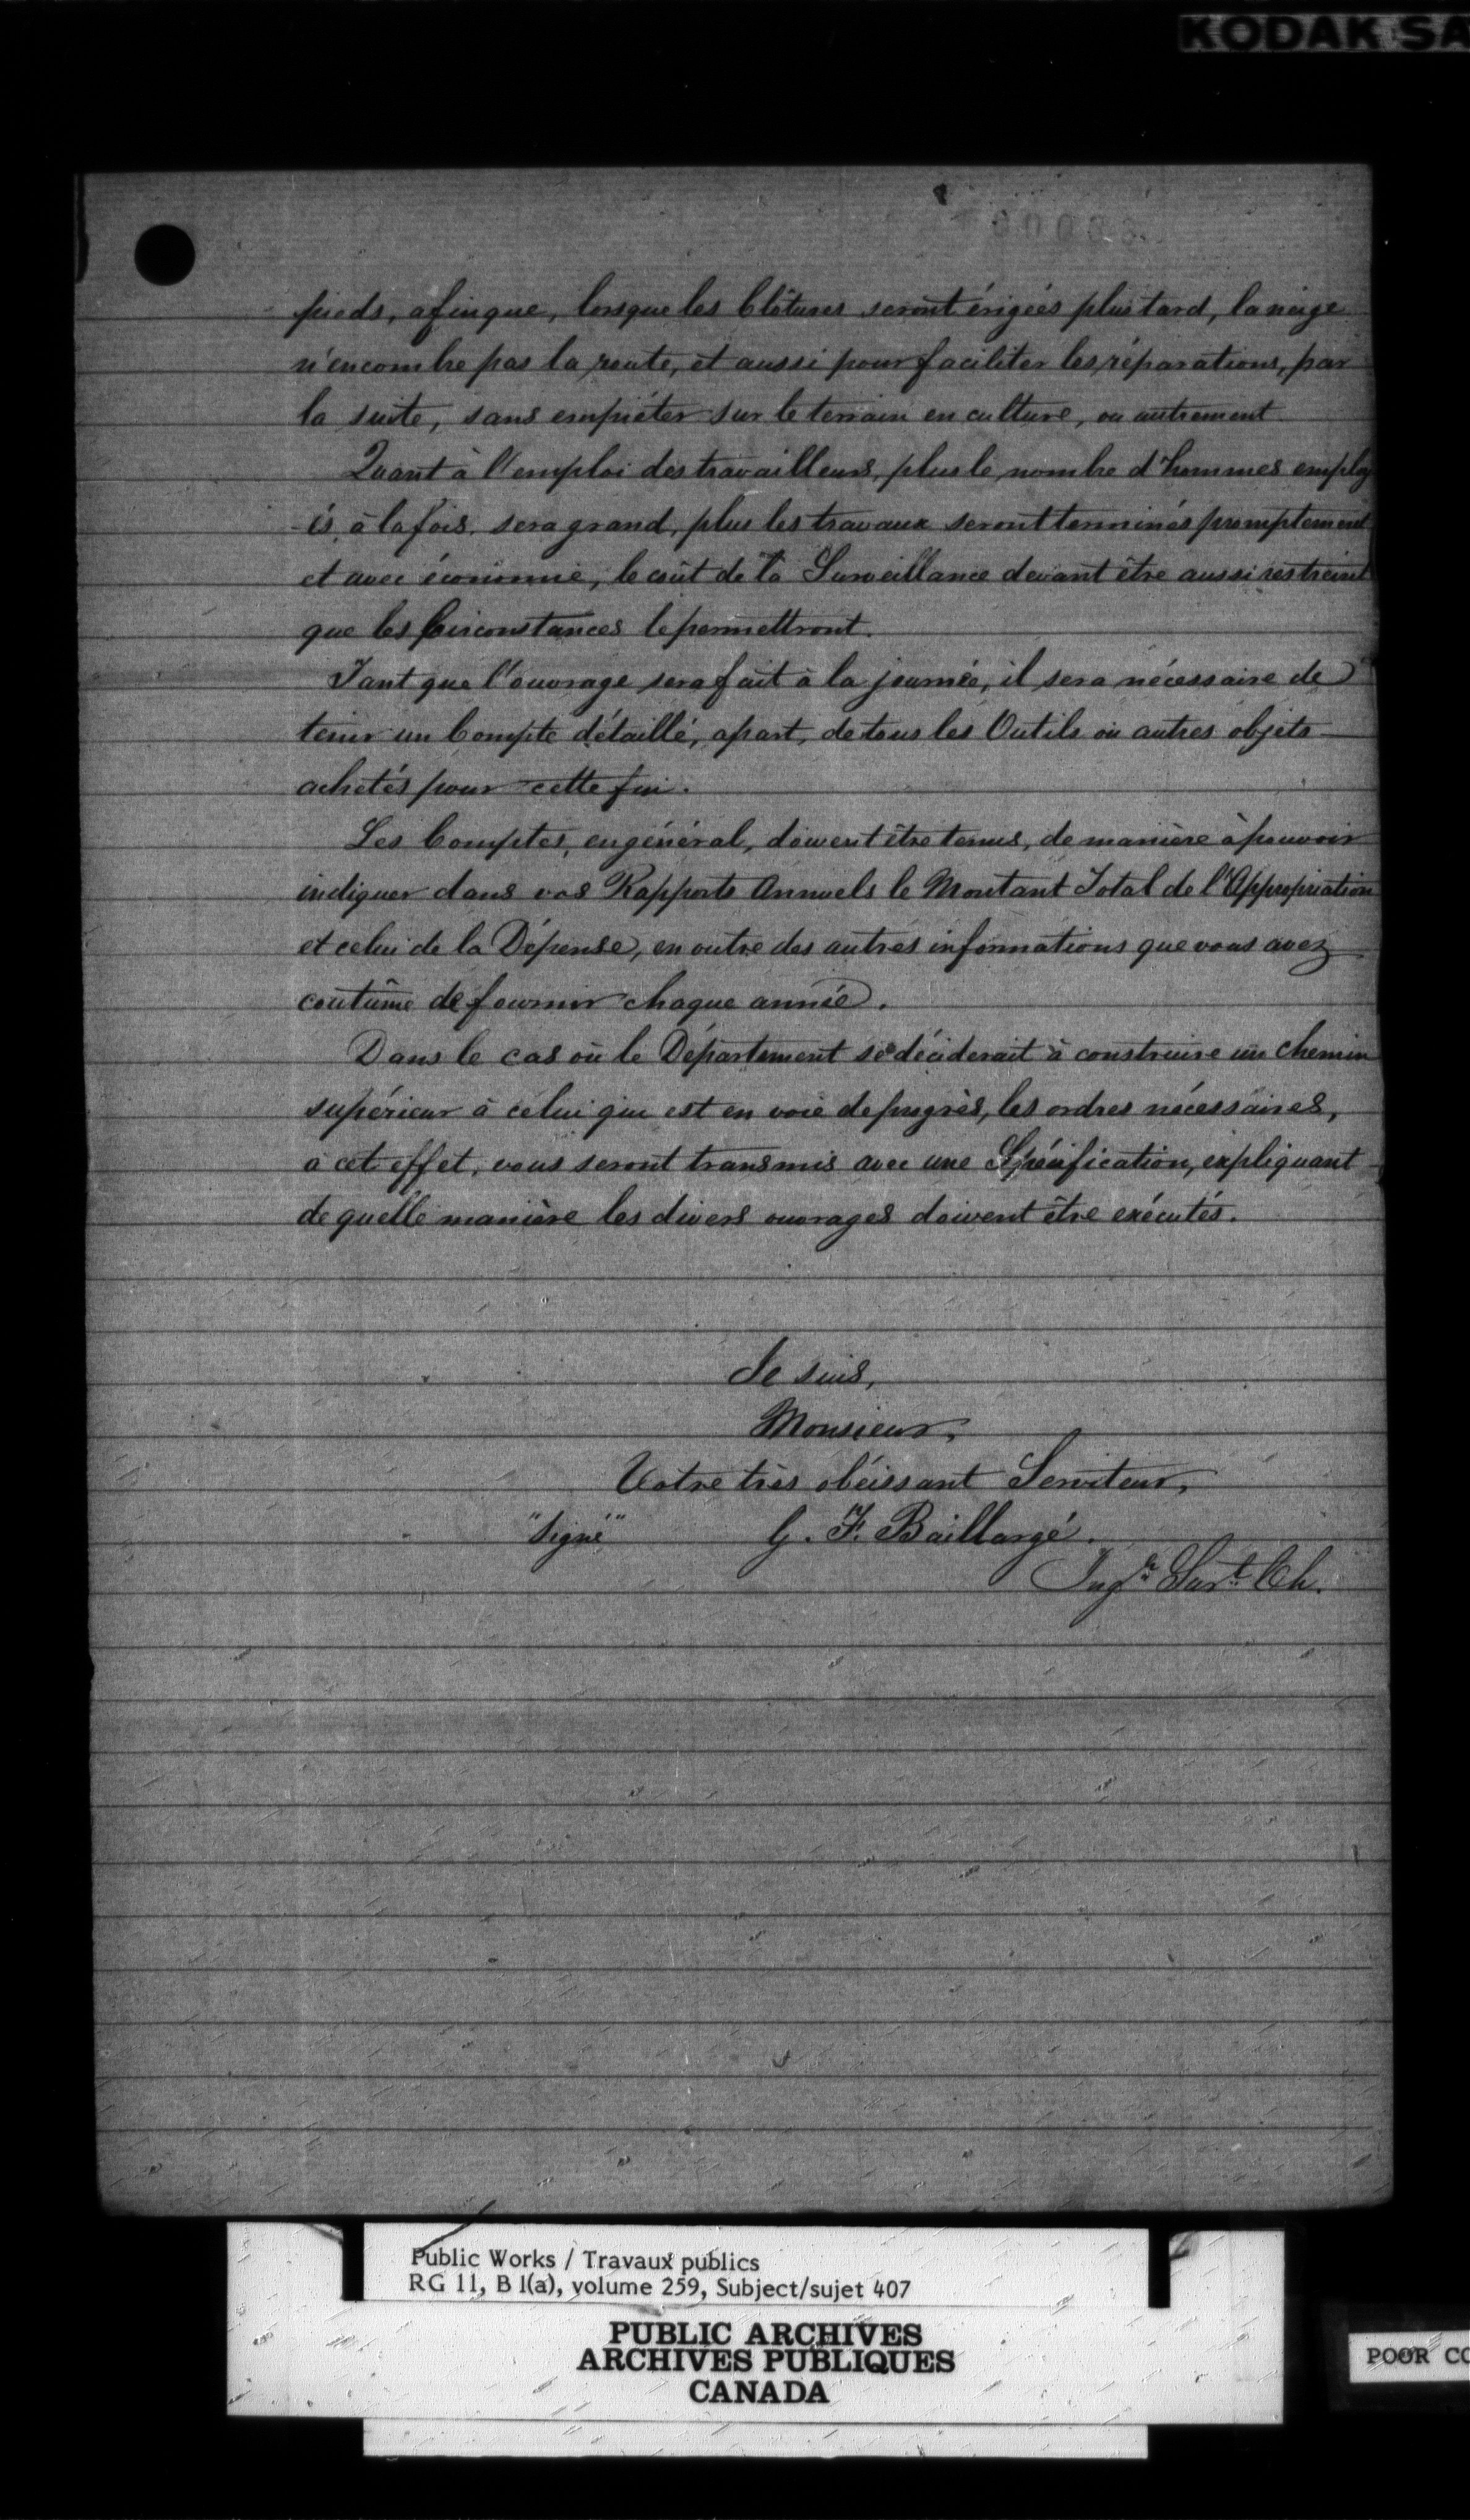 KODAK SA
pieds, afin que, lorsque les Clôtures seront érigées plus tard, la neige
n'encombre pas la route, et aussi pour faciliter les réparations, par
la suite, sans empiéter sur le terrain en culture, ou autrement
Quant à l'emploi des travailleurs, plus le nombre d'hommes employ
-és, à la fois, sera grand, plus les travaux seront terminés promptement
et avec économie, le coût de la Surveillance devant être aussi restreint
que les Circonstances le permettront.
Tant que l'ouvrage sera fait à la journée, il sera nécessaire de
tenir un Compte détaillé, apart, de tous les Outils ou autres objets
achetés pour cette fin.
Les Comptes, en général, doivent être tenus, de manière à pouvoir
indiquer dans vos Rapports Annuels le Montant Total de l'Appropriation
et celui de la Dépense, en outre des autres informations que vous avez
coutûme de fournir chaque année.
Dans le cas où le Département se déciderait à construire un chemin
supérieur à celui qui est en voie de progrès, les ordres nécessaires,
à cet effet, vous seront transmis avec une Spécification, expliquant
de quelle manière les divers ouvrages doivent être exécutés.
Je suis,
Monsieur,
Votre très obéissant Serviteur,
"Signé" G. F. Baillargé.
Ingr. Surt. Ch.
Public Works / Travaux publics
RG 11, B 1(a), volume 259, Subject/sujet 407
PUBLIC ARCHIVES
ARCHIVES PUBLIQUES
CANADA
POOR CO